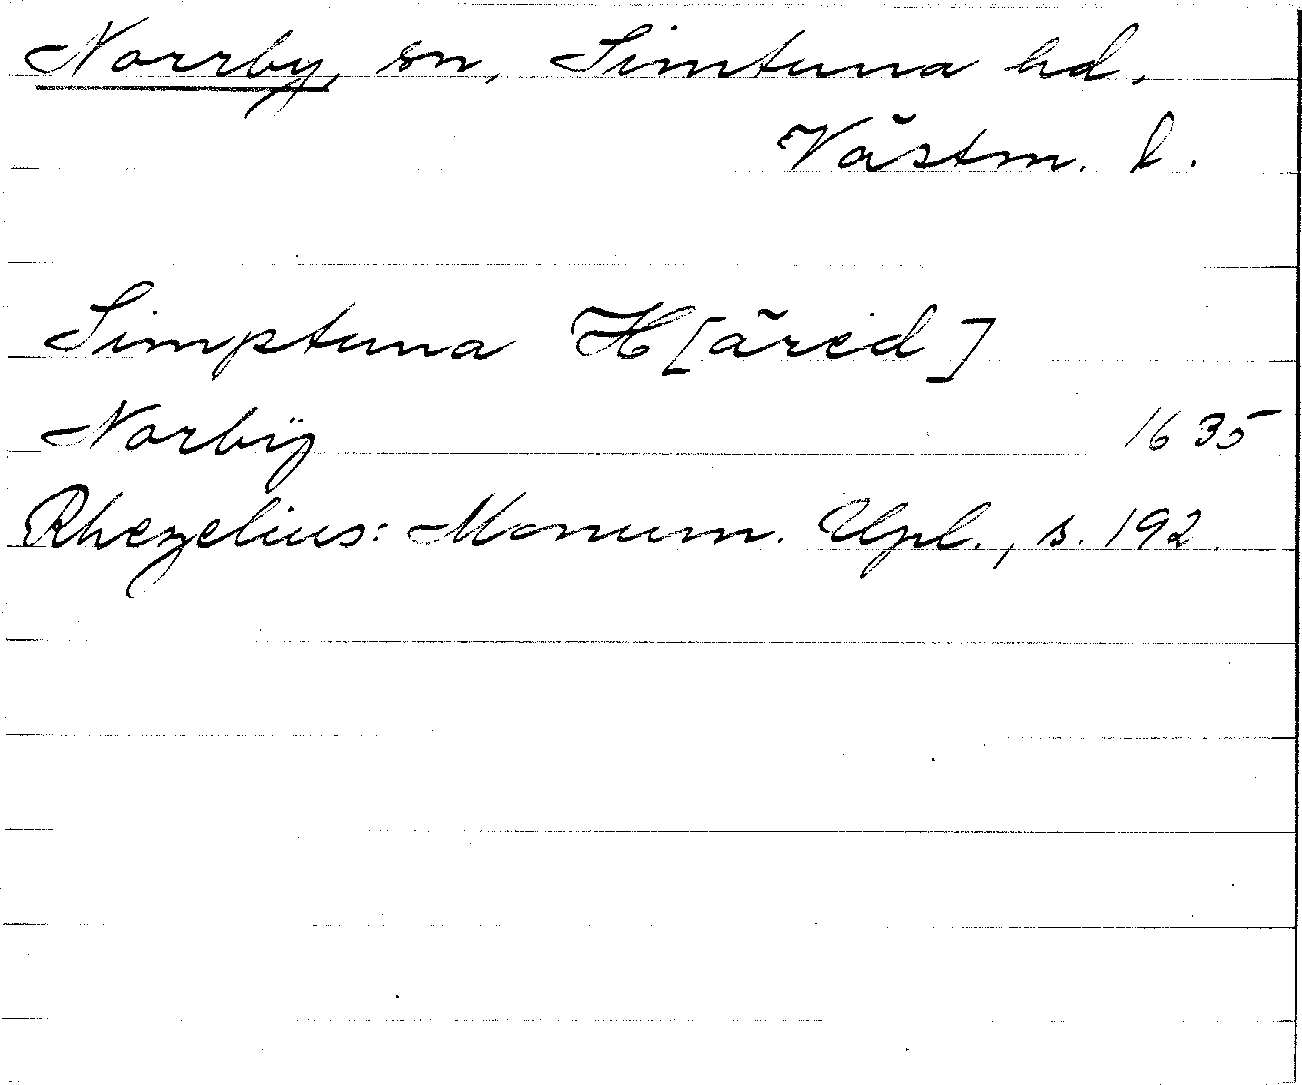 Norrby, sn, Simtuna hd,
Västm. l.
Simptuna H[äred]
Norbÿ 1635
Rhezelius: Monum. Upl., s. 192.